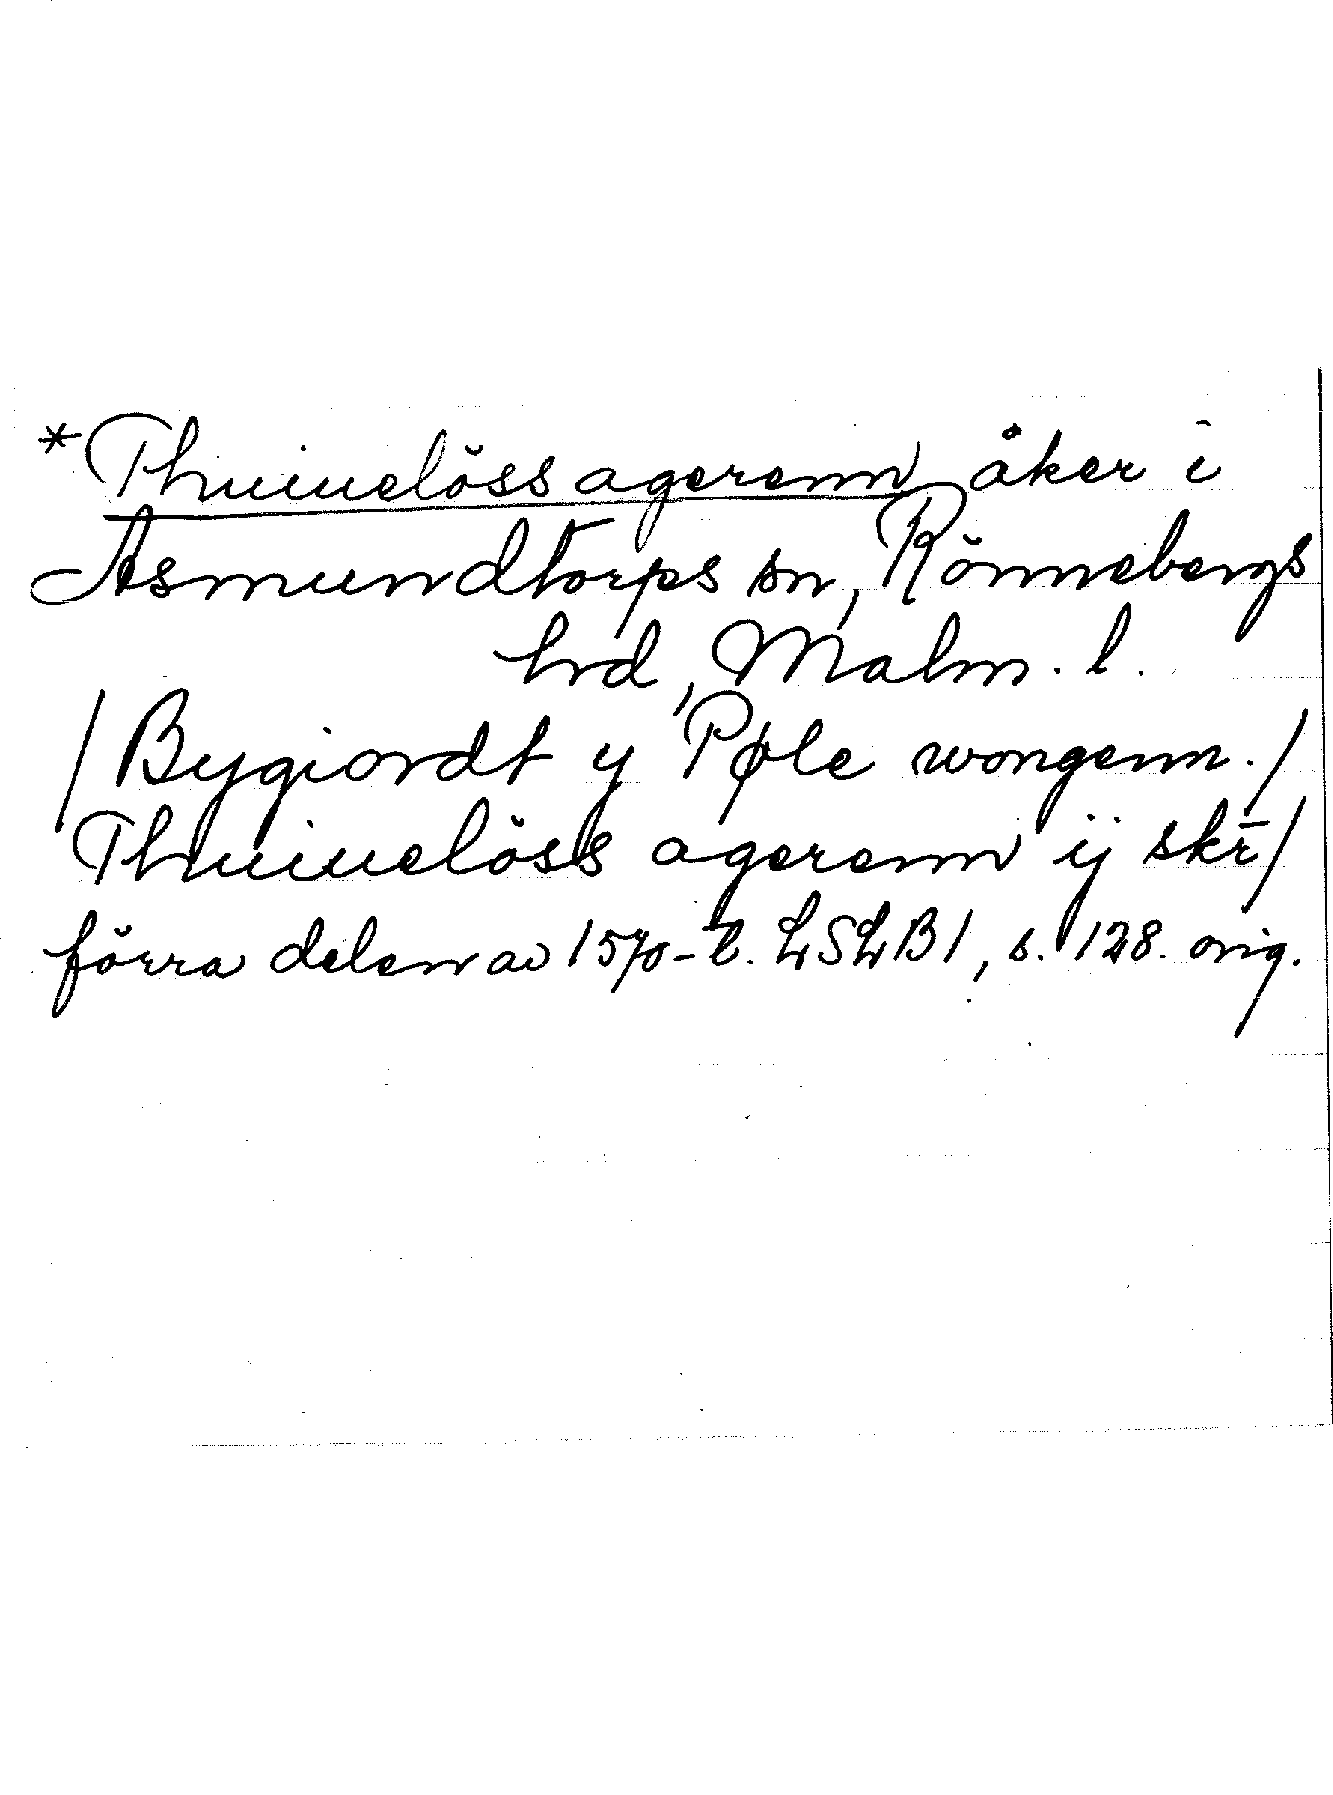 *Thuiuelöss agerenn åker i
Asmundtorps sn, Rönnebergs
hrd, Malm. l.
/Bygiordt y Pøle wongenn./
Thuiuelöss agerenn ij skr̄/
förra delen av 1570-t. LSLB1, s. 128. orig.